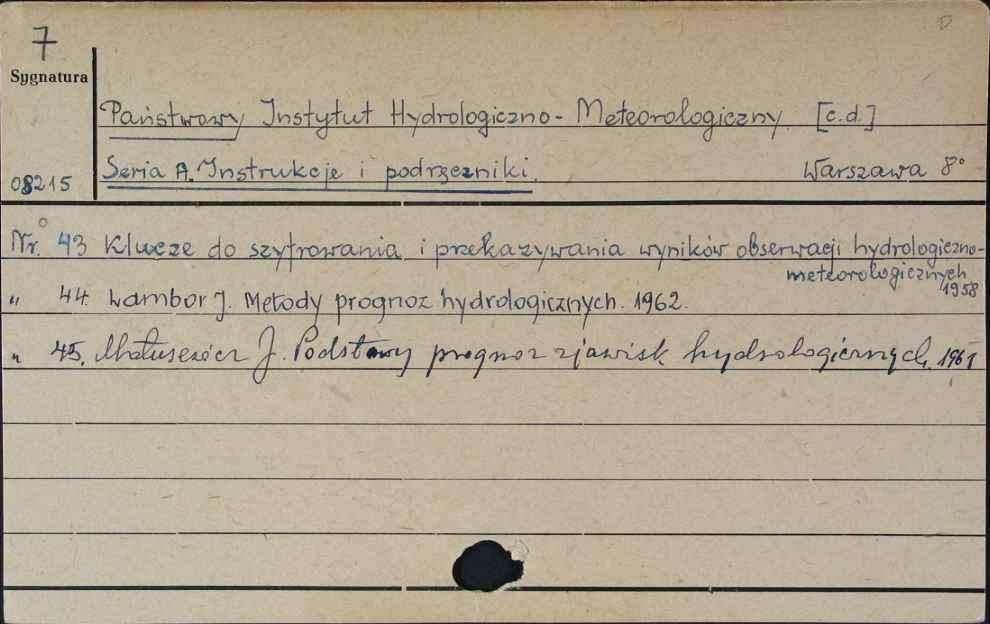 7
Sygnatura
Państwowy Instytut Hydrologiczno-Meteorologiczny. [c.d.]
08215
Seria A. Instrukcje i podręczniki. Warszawa 8°
Nr. 43 Klucze do szyfrowania i przekazywania wyników obserwacji hydrologiczno-
meteorologicznych
1958
" 44. Lambor J. Metody prognoz hydrologicznych. 1962.
" 45. J. Podstawy prognoz zjawisk hydrologicznych. 1961